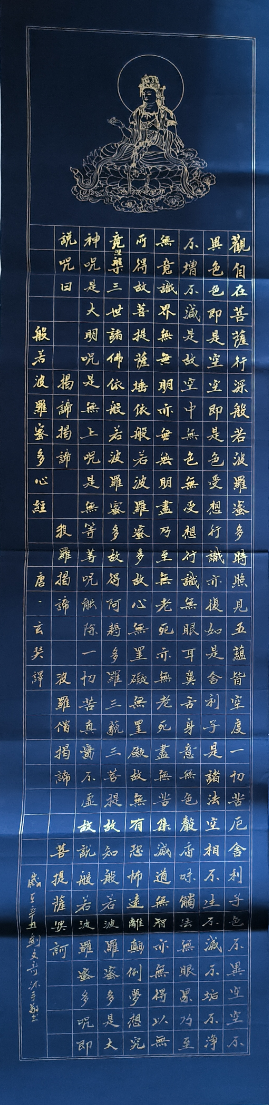 觀自在菩薩行深般若波羅蜜多時照見五蘊皆空度一切苦厄舍利子色不異空空不
異色色即是空空即是色受想行識亦復如是舍利子是諸法空相不生不滅不垢不淨
不增不減是故空中無色無受想行識無眼耳鼻舌身意無色聲香味觸法無眼界乃至
無意識界無無明亦無無明盡乃至無老死亦無老死盡無苦集滅道無智亦無得以無
所得故菩提薩埵依般若波羅蜜多故心無罣礙無罣礙故無有恐怖遠離顛倒夢想究
竟涅槃三世諸佛依般若波羅蜜多故得阿耨多羅三藐三菩提故知般若波羅蜜多是大
神呪是大明呪是無上呪是無等等呪能除一切苦真實不虛故說般若波羅蜜多呪即
說呪曰 揭諦揭諦 般羅揭諦 波羅僧揭諦 菩提薩婆訶
般若波羅蜜多心經 唐·玄奘譯